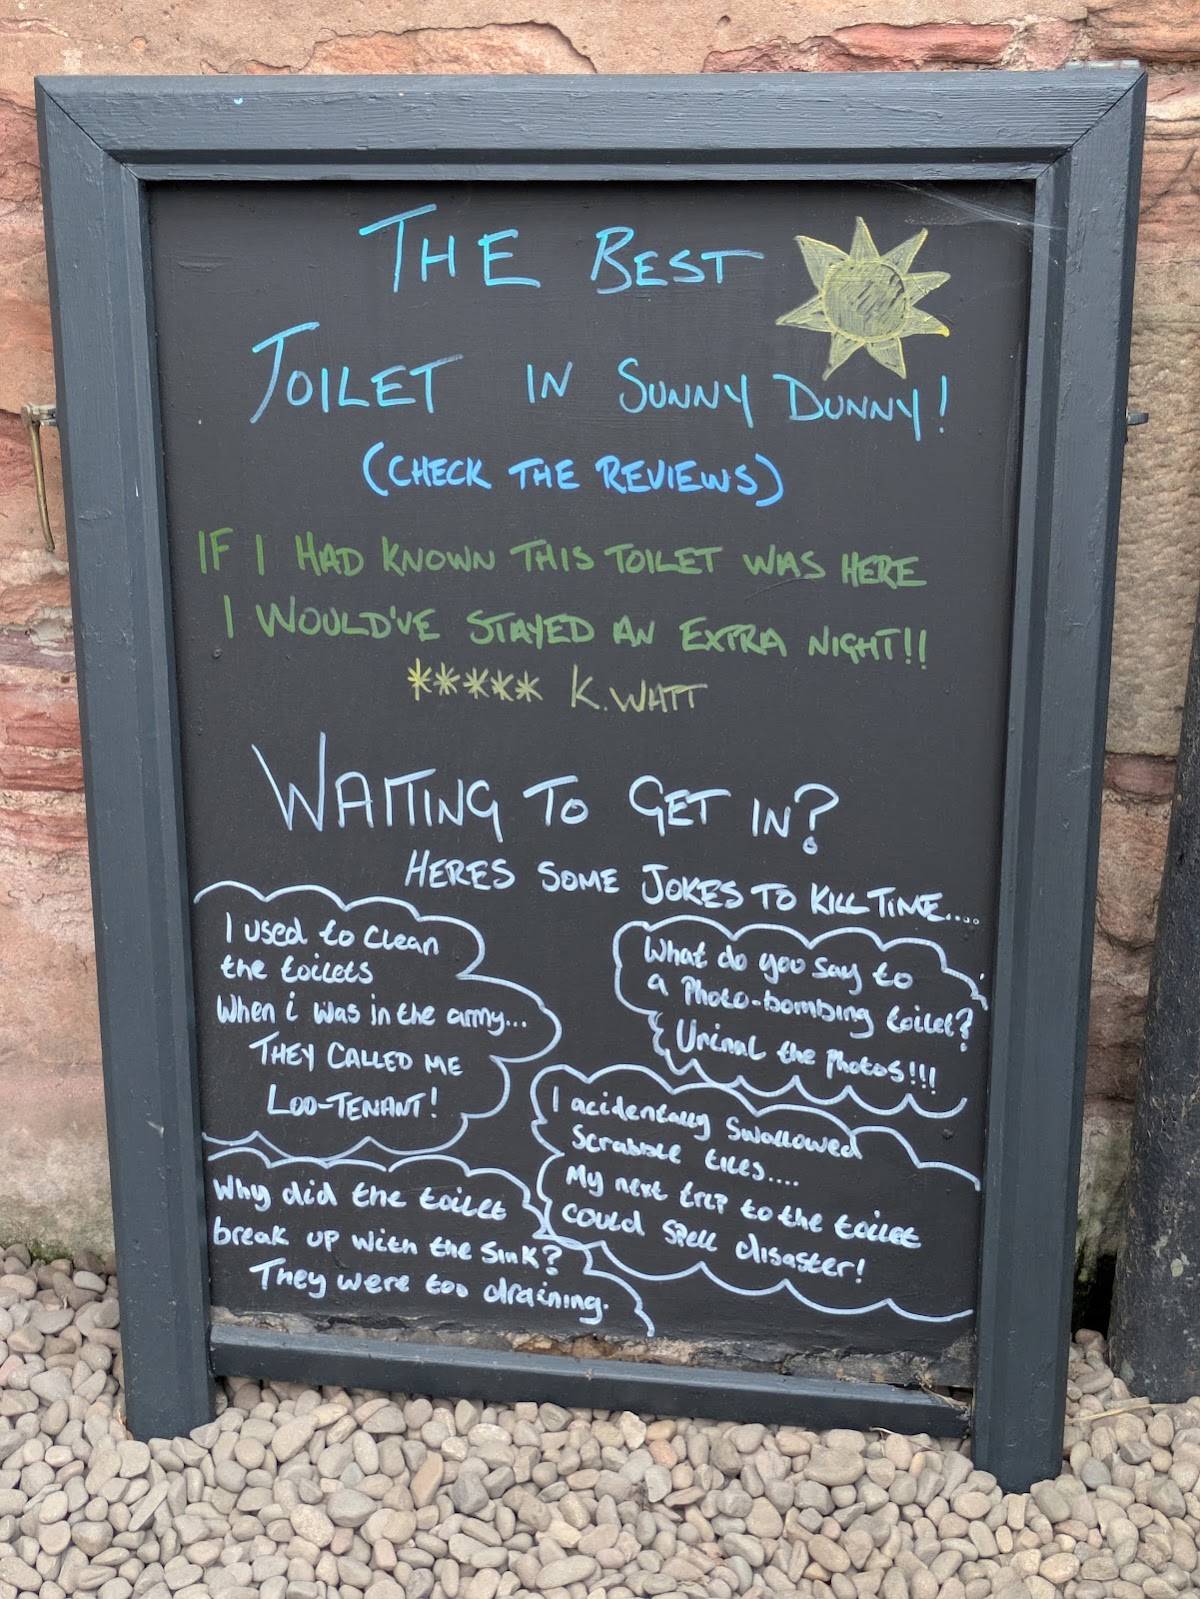 THE BEST
TOILET IN SUNNY DUNNY!
(CHECK THE REVIEWS)
IF I HAD KNOWN THIS TOILET WAS HERE
I WOULD'VE STAYED AN EXTRA NIGHT!!
***** K. WATT
WAITING TO GET IN?
HERES SOME JOKES TO KILL TIME....
I used to clean
the toilets
When i was in the army...
THEY CALLED ME
LOO-TENANT!
What do you say to
a Photo-bombing toilet?
Urinal the photos!!!
I acidentally swallowed
Scrabble tiles....
My next trip to the toilet
could spell disaster!
Why did the toilet
break up with the sink?
They were too draining.